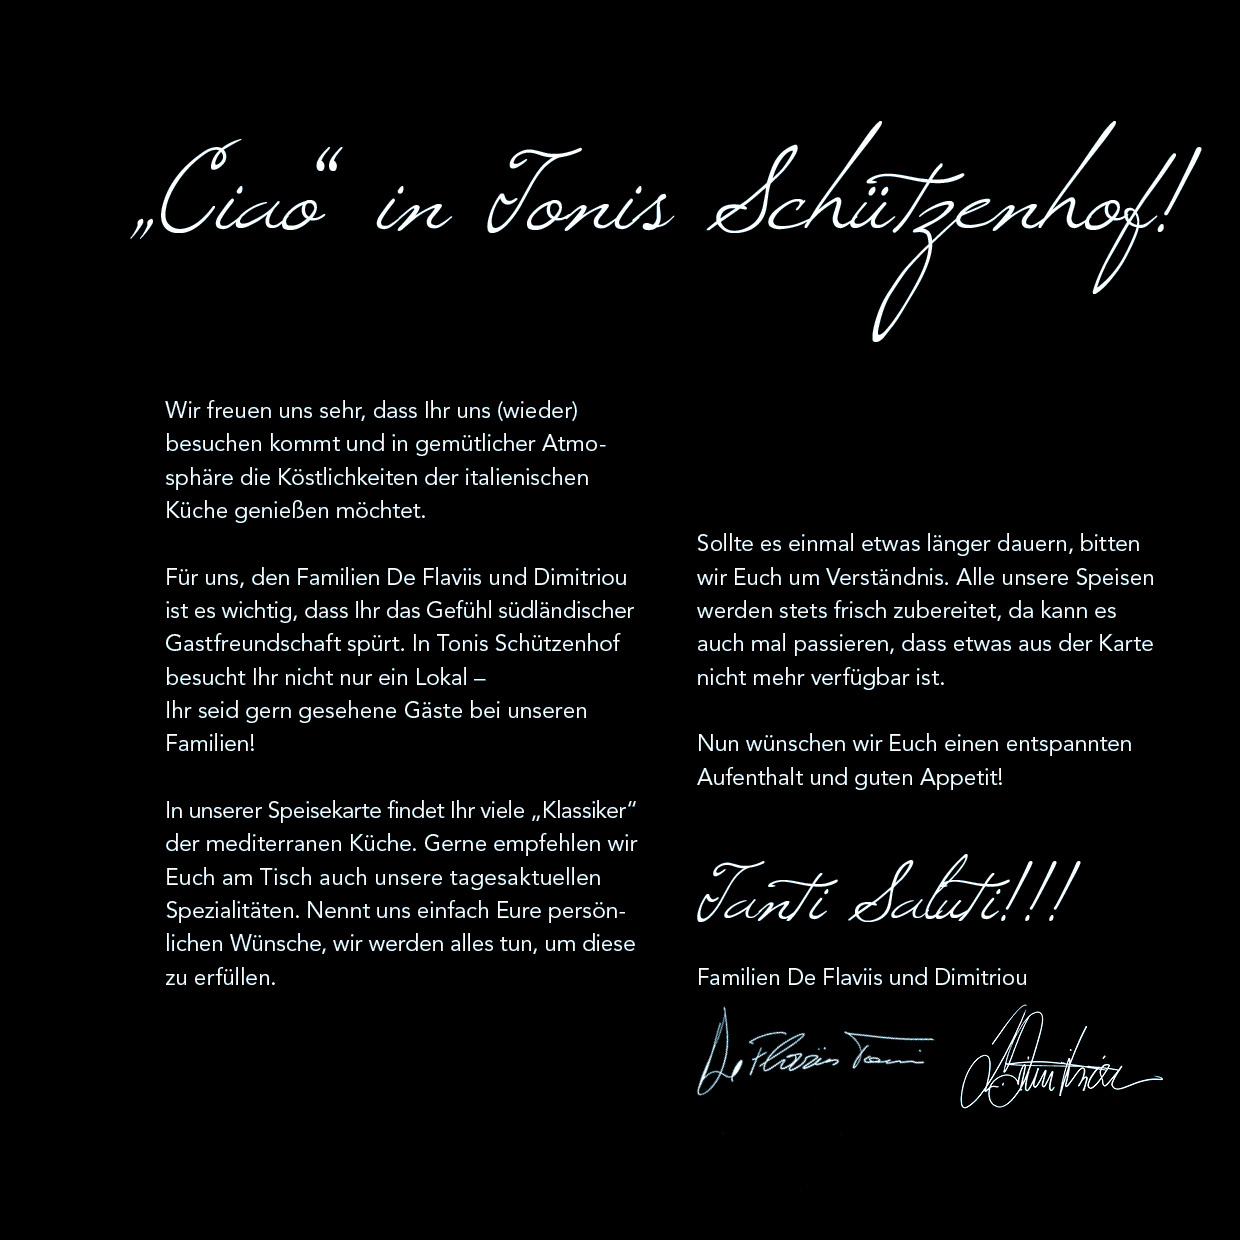 „Ciao“ in Tonis Schützenhof!
Wir freuen uns sehr, dass Ihr uns (wieder)
besuchen kommt und in gemütlicher Atmo-
sphäre die Köstlichkeiten der italienischen
Küche genießen möchtet.
Für uns, den Familien De Flaviis und Dimitriou
ist es wichtig, dass Ihr das Gefühl südländischer
Gastfreundschaft spürt. In Tonis Schützenhof
besucht Ihr nicht nur ein Lokal –
Ihr seid gern gesehene Gäste bei unseren
Familien!
In unserer Speisekarte findet Ihr viele „Klassiker“
der mediterranen Küche. Gerne empfehlen wir
Euch am Tisch auch unsere tagesaktuellen
Spezialitäten. Nennt uns einfach Eure persön-
lichen Wünsche, wir werden alles tun, um diese
zu erfüllen.
Sollte es einmal etwas länger dauern, bitten
wir Euch um Verständnis. Alle unsere Speisen
werden stets frisch zubereitet, da kann es
auch mal passieren, dass etwas aus der Karte
nicht mehr verfügbar ist.
Nun wünschen wir Euch einen entspannten
Aufenthalt und guten Appetit!
Tanti Saluti!!!
Familien De Flaviis und Dimitriou
De Flaviis Toni